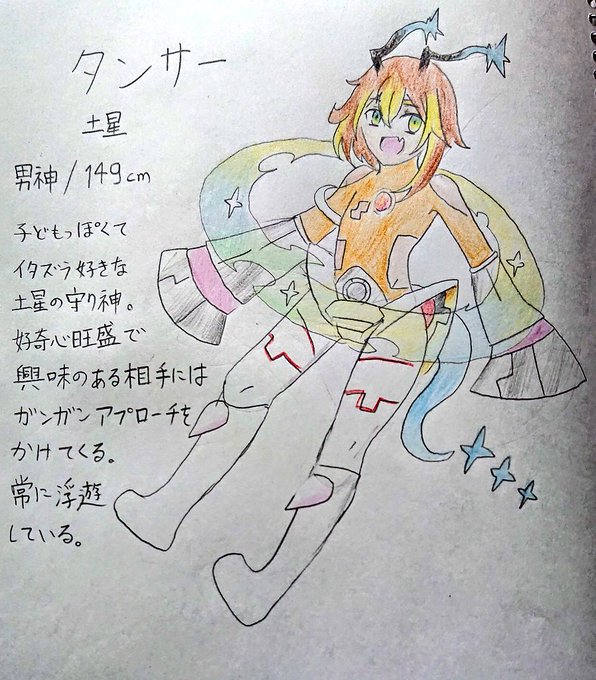 タンサー
土星
男神/149cm
子どもっぽくて
イタズラ好きな
土星の守り神。
好奇心旺盛で
興味のある相手には
ガンガンアプローチを
かけてくる。
常に浮遊
している。